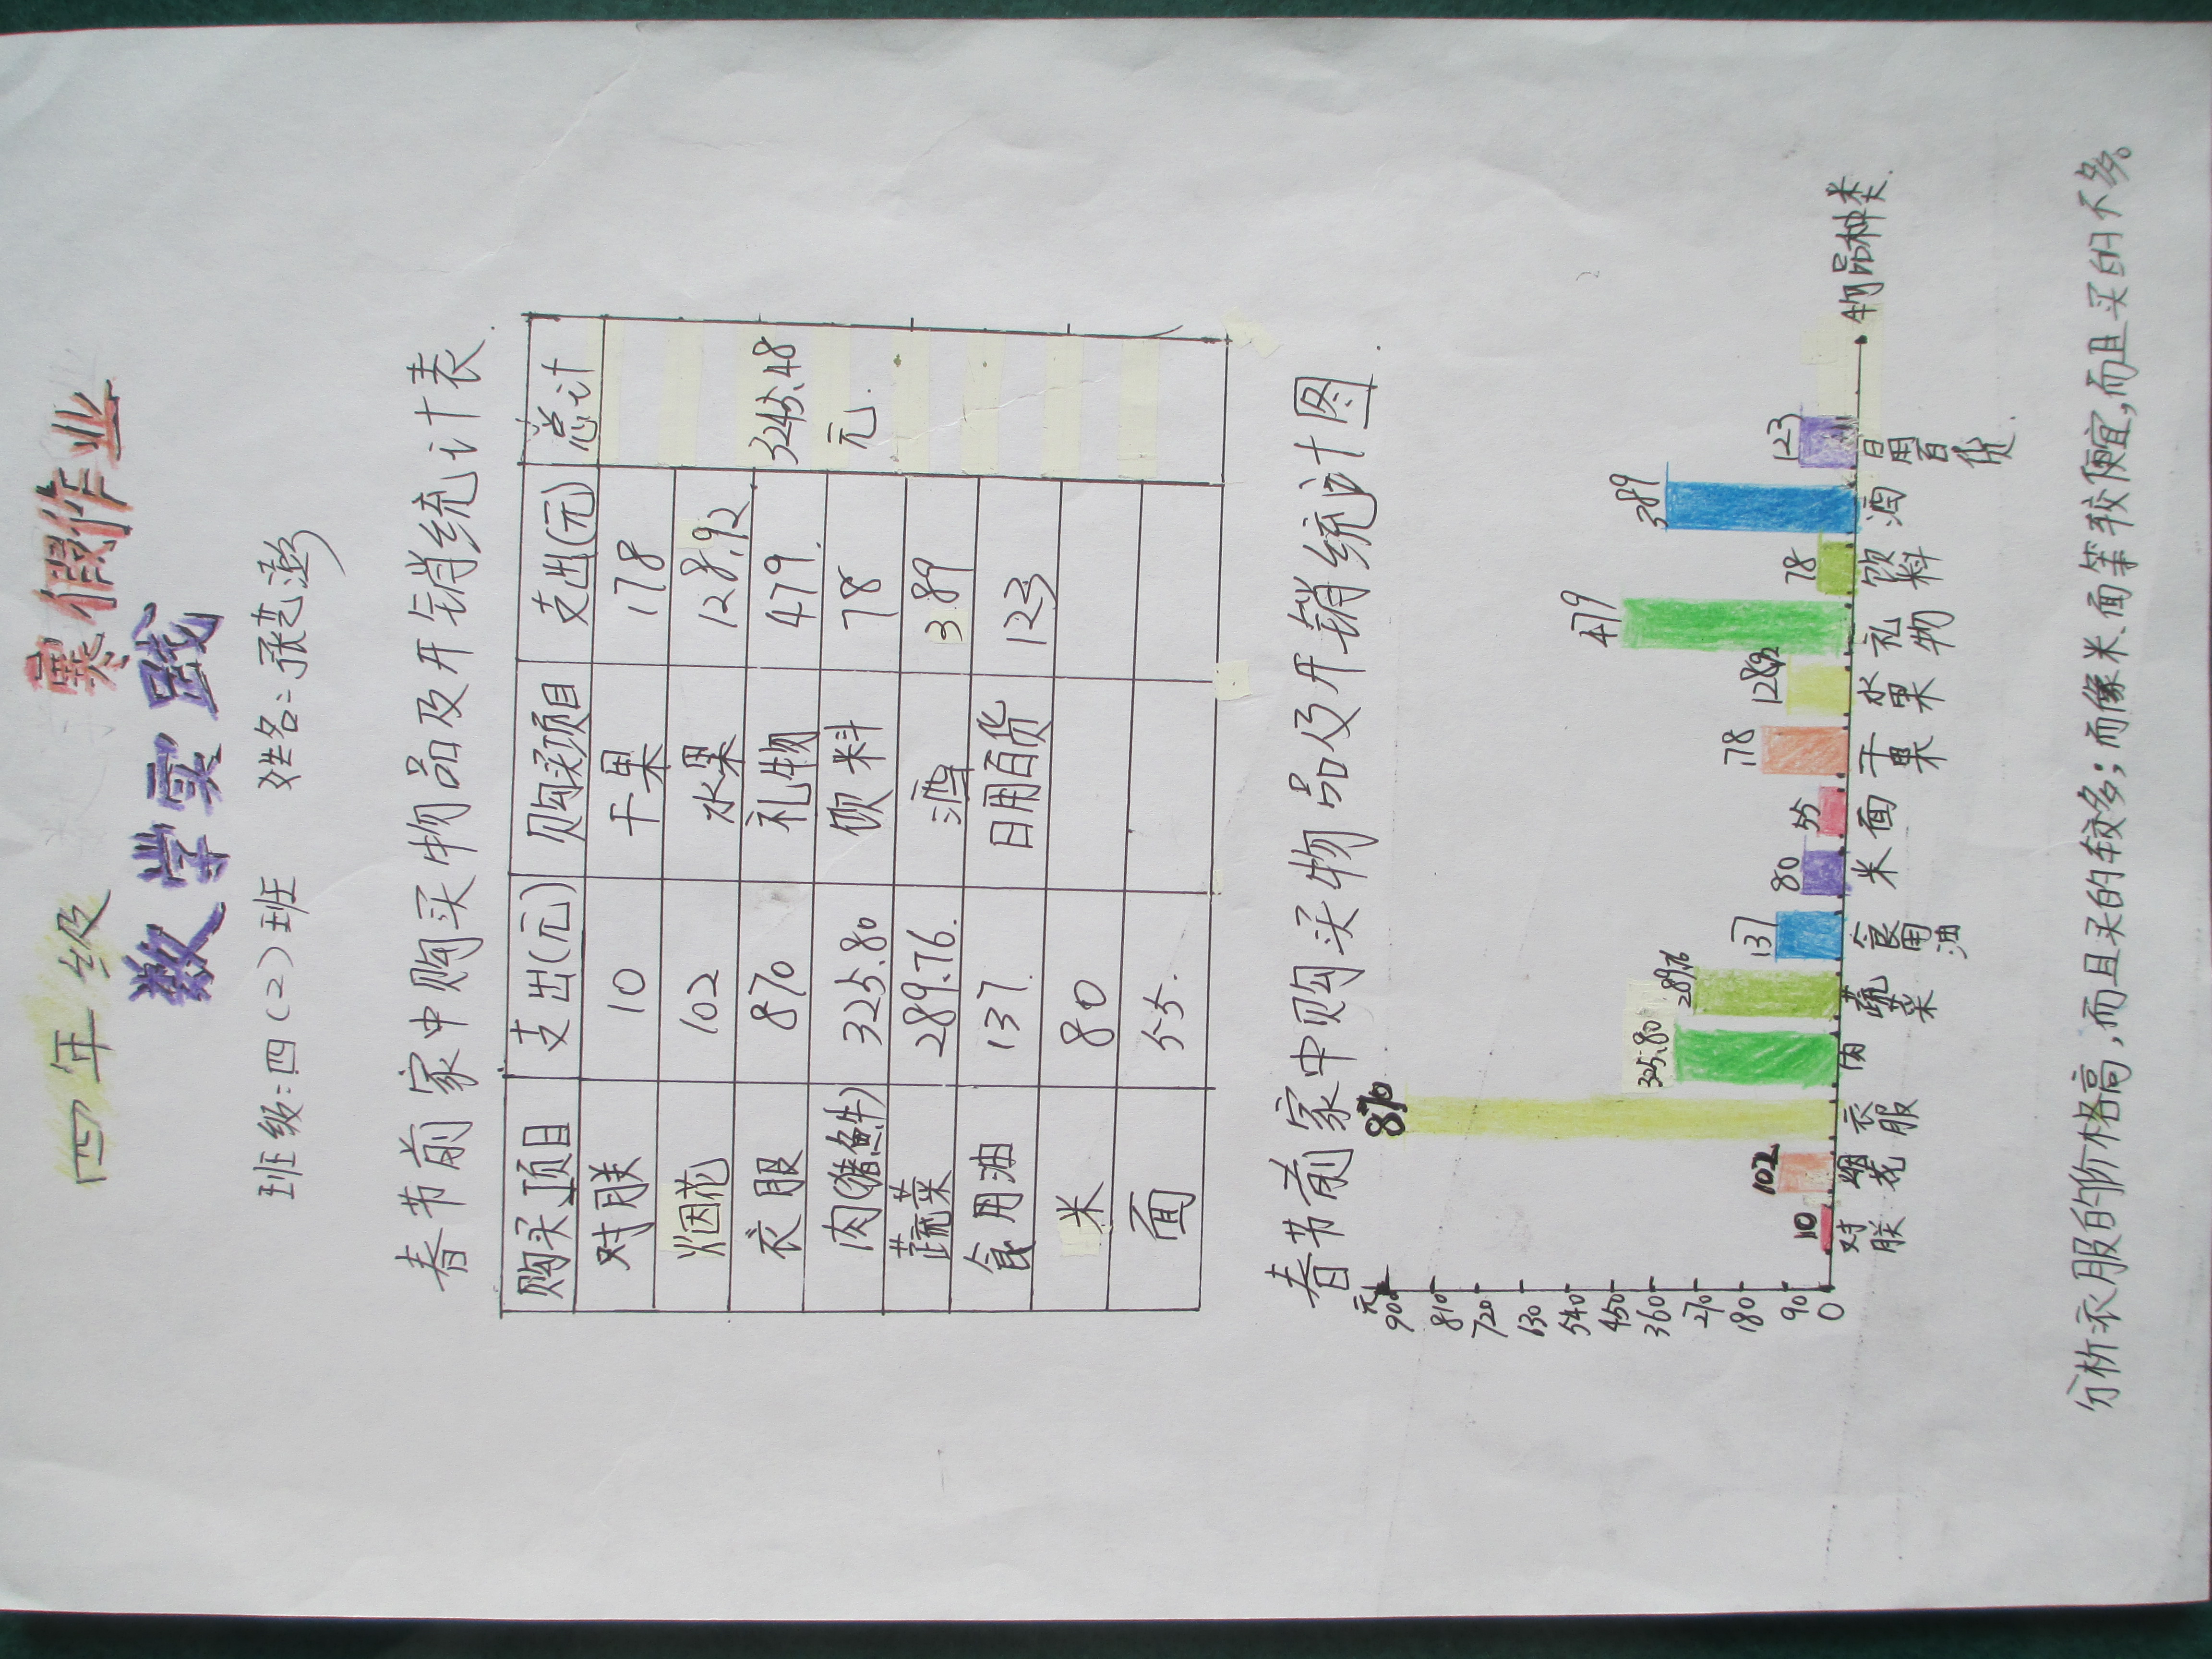 四年级 寒假作业
数学实践
班级:四(2)班 姓名:张艺澎
春节前家中购买物品及开销统计表
购买项目 支出(元) 购买项目 支出(元) 总计
对联 10 干果 178
烟花 102 水果 128.92
衣服 870 礼物 479. 3245.48
肉(猪鱼牛) 325.80 饮料 78 元.
蔬菜 289.76. 酒 389
食用油 137. 日用百货 123
米 80
面 55.
春节前家中购买物品及开销统计图
元
900
810
720
630
540
450
360
270
180
90
0
10 102 870 325.80 289.76 137 80 55 178 128.92 479 78 389 123
对联 烟花 衣服 肉 蔬菜 食用油 米 面 干果 水果 礼物 饮料 酒 日用百货 物品种类.
分析:衣服的价格高,而且买的较多;而像米、面等较便宜,而且买的不多。